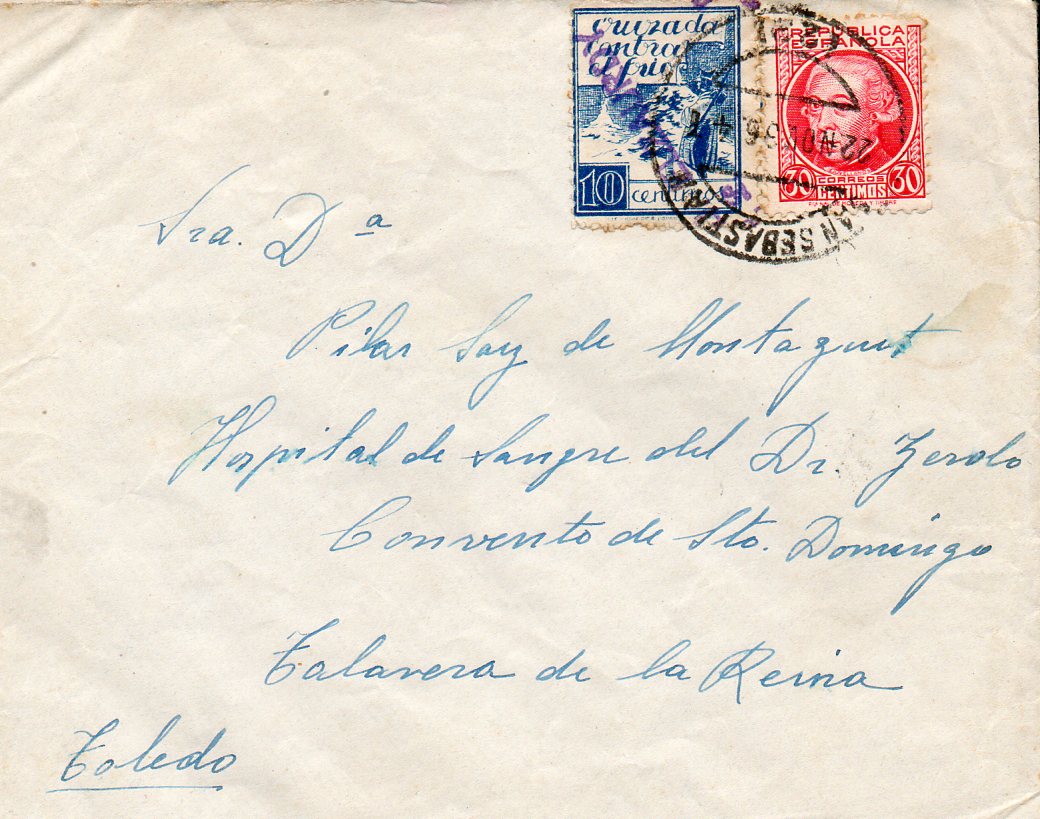 cruzada
contra
el frío
10 centimos
REPUBLICA
ESPAÑOLA
30 CORREOS 30
CENTIMOS
22 NOV 36
SAN SEBASTIAN
Sra. Dª
Pilar Say de Montagut
Hospital de Sangre del Dr. Zerolo
Convento de Sto. Domingo
Talavera de la Reina
Toledo